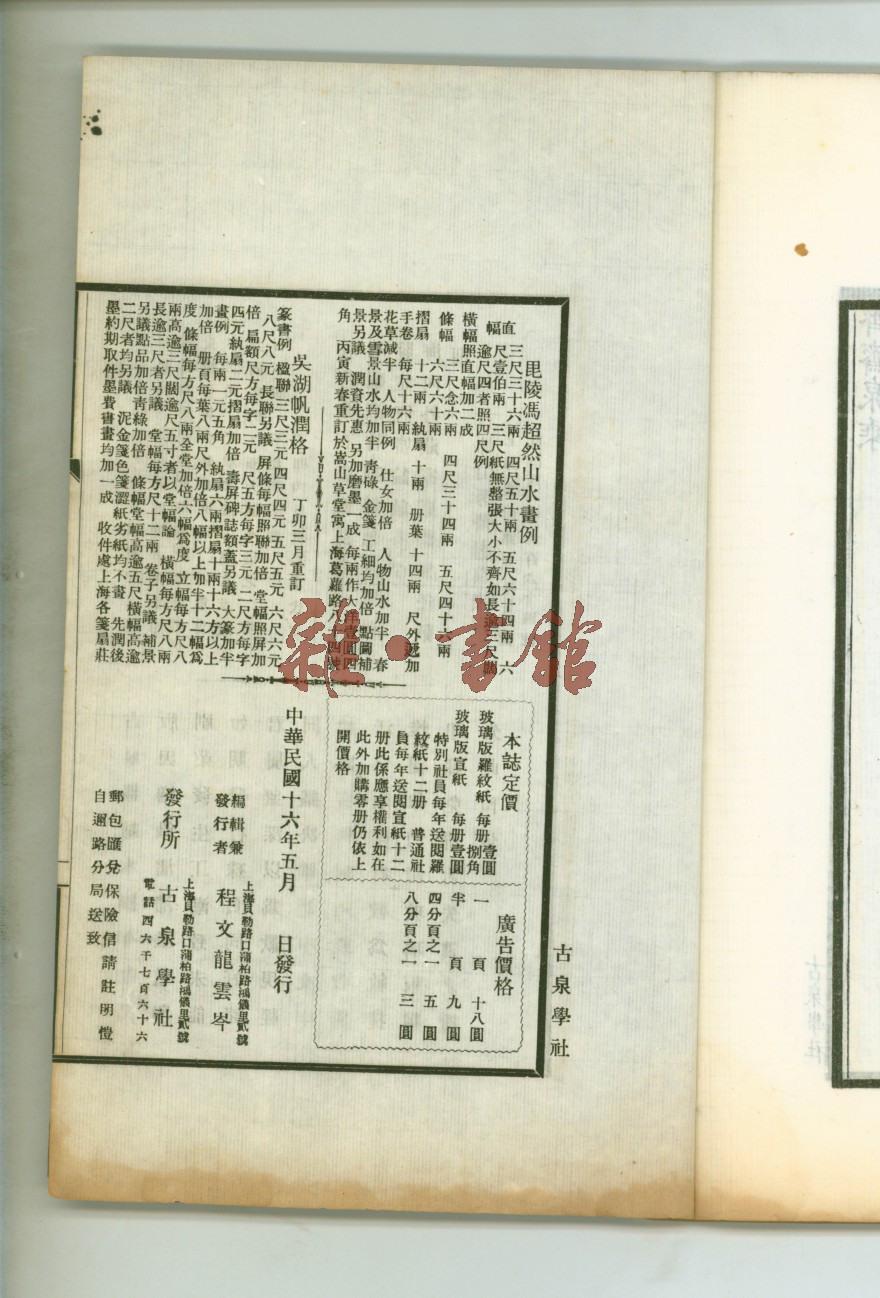 毘陵馮超然山水畫例
直幅 三尺三十六兩 四尺五十兩 五尺六十四兩 六
尺壹伯兩 三尺紙無整張大小不齊如長逾三尺闊
逾尺四者照四尺例
橫幅照直幅加二成
條幅 三尺念六兩 四尺三十四兩 五尺四十六兩
六尺六十兩
摺扇 十二兩 紈扇 十兩 册葉 十四兩 尺外遞加
手卷 每尺十六兩
花草減半 人物同例 仕女加倍 人物山水加半 春
景及雪景山水均加半 靑碌 金箋 工細均加倍 點圖補
景另議 潤資先惠 另加磨墨一成 每兩作大洋壹圓四
角 丙寅新春重訂於嵩山草堂寓上海葛羅路八十四號
吳湖帆潤格 丁卯三月重訂
篆書例 楹聯 三尺三元 四尺四元 五尺五元 六尺六元
八尺八元 長聯另議 屏條每幅照聯加倍 堂幅照屏加
倍 扁額尺方每字二元 尺五方每字三元 二尺方每字
四元 紈扇二元 摺扇加倍 壽屏碑誌額蓋另議 大篆加半
畫例 每兩一元五角 紈扇六兩 摺扇十兩 十六方以上
加倍 册頁每葉八兩 尺外加倍 八幅以上加半 十二幅爲
度 條幅每方尺八兩 全堂加倍 六幅爲度 立幅每方尺八
兩 高逾三尺闊逾尺五寸者以堂幅論 橫幅每方尺八兩
長逾三尺者另議 堂幅每方尺十二兩 卷子另議 補景
另議 點品加倍 靑綠加倍 條幅堂幅高逾五尺橫幅高逾
二尺者均另議 泥金箋色箋澀紙劣紙均不畫 先潤後
墨 約期取件 墨費書畫均加一成 收件處上海各箋扇莊
本誌定價
玻璃版羅紋紙 每册壹圓捌角
玻璃版宣紙 每册壹圓
特別社員每年送閱羅
紋紙十二册 普通社
員每年送閱宣紙十二
册此係應享權利如在
此外加購零册仍依上
開價格
廣告價格
一頁 十八圓
半頁 九圓
四分頁之一 五圓
八分頁之一 三圓
中華民國十六年五月 日發行
編輯兼發行者 程文龍雲岑
上海貝勒路口蒲柏路鴻儀里貳號
發行所 古泉學社
上海貝勒路口蒲柏路鴻儀里貳號
電話四六千七百六十六
郵包匯兌保險信請註明愷
自邇路分局送致
古泉學社
雜·書館